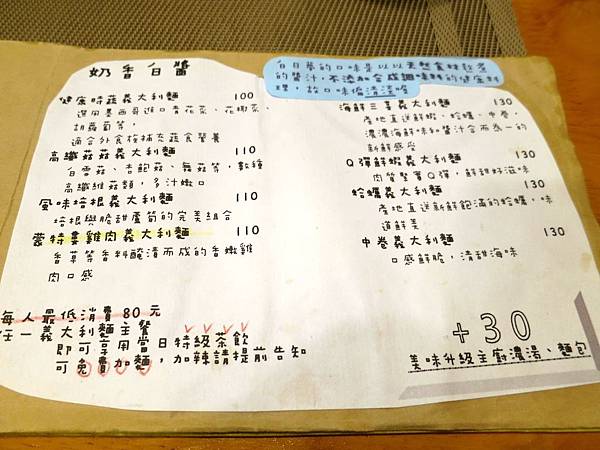 奶香白醬
健康時蔬義大利麵 100
選用墨西哥進口青花菜、花椰菜、
胡蘿蔔等，
適合外食族補充蔬食營養
高纖菇菇義大利麵 110
白雪菇、杏鮑菇、舞菇等，數種
高纖維菇類，多汁嫩口
風味培根義大利麵 110
培根與脆甜蘆筍的完美組合
雞肉義大利麵 110
香草等香料醃漬而成的香嫩雞
肉口感
每人最低消費80元
任一義大利麵主餐
即可享用當日特級茶飲
可免費加麵，加辣請提前告知
白日夢的口味是以天然食材熬煮
的醬汁，不添加合成調味料的健康料
理，故口味偏清淡喔
海鮮三享義大利麵 130
產地直送鮮蝦、蛤蠣、中卷，
濃濃海鮮味和醬汁合而為一的
新鮮感受
Q彈鮮蝦義大利麵 130
肉質緊實Q彈，鮮甜好滋味
蛤蠣義大利麵 130
產地直送新鮮飽滿的蛤蠣，味
道鮮美
中卷義大利麵 130
口感鮮脆，清甜海味
+30
美味升級主廚濃湯、麵包